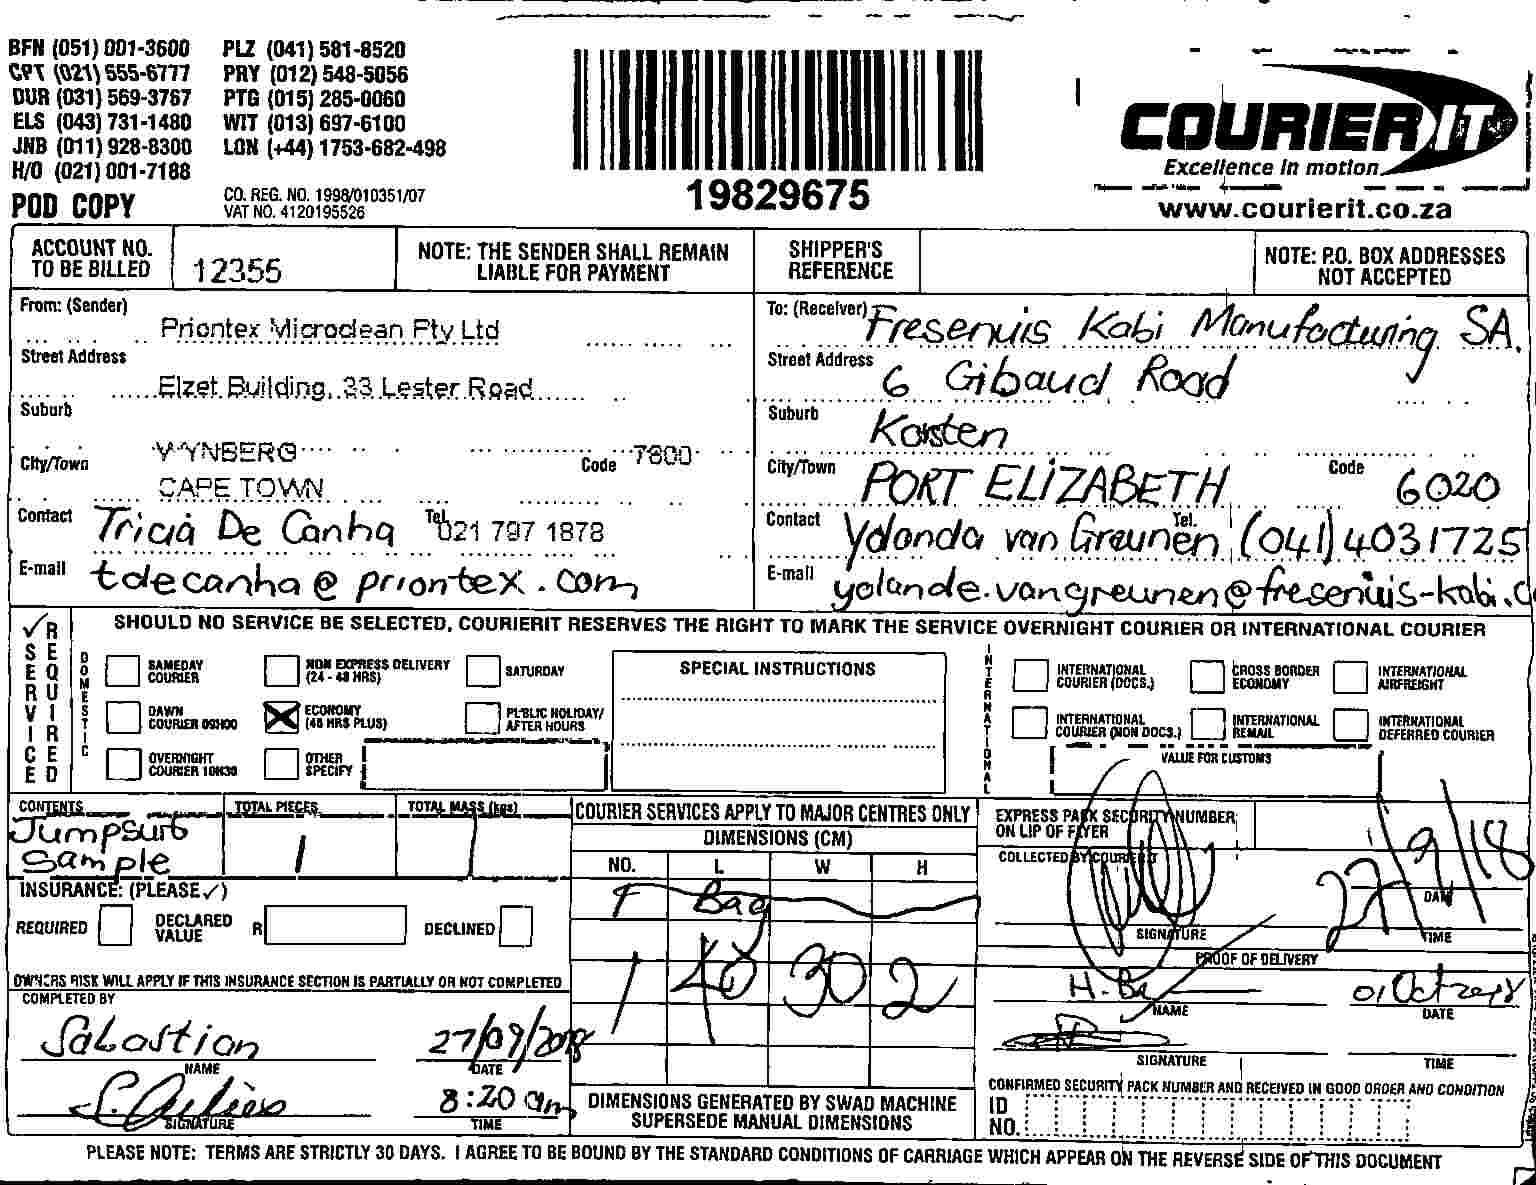 BFN (051) 001-3600 PLZ (041) 581-8520
CPT (021) 555-6777 PRY (012) 548-5056
DUR (031) 569-3767 PTG (015) 285-0060
ELS (043) 731-1480 WIT (013) 697-6100
JNB (011) 928-8300 LON (+44) 1753-682-498
H/O (021) 001-7188
POD COPY
CO. REG. NO. 1998/010351/07
VAT NO. 4120195526
19829675
COURIERIT
Excellence in motion
www.courierit.co.za
ACCOUNT NO. TO BE BILLED
12355
NOTE: THE SENDER SHALL REMAIN LIABLE FOR PAYMENT
SHIPPER'S REFERENCE
NOTE: P.O. BOX ADDRESSES NOT ACCEPTED
From: (Sender)
Priontex Microclean Pty Ltd
Street Address
Elzet Building, 33 Lester Road
Suburb
WYNBERG
City/Town
Code 7800
CAPE TOWN
Contact Tricia De Canha Tel. 021 797 1878
E-mail tdecanha@priontex.com
To: (Receiver) Fresenuis Kabi Manufacturing SA.
Street Address 6 Gibaud Road
Suburb Korsten
City/Town PORT ELIZABETH Code 6020
Contact Yolanda van Greunen Tel. (041) 4031725
E-mail yolande.vangreunen@fresenuis-kabi.c
✓ SERVICE REQUIRED
SHOULD NO SERVICE BE SELECTED, COURIERIT RESERVES THE RIGHT TO MARK THE SERVICE OVERNIGHT COURIER OR INTERNATIONAL COURIER
DOMESTIC
SAMEDAY COURIER
NON EXPRESS DELIVERY (24 - 48 HRS)
SATURDAY
DAWN COURIER 09H00
ECONOMY (48 HRS PLUS)
PUBLIC HOLIDAY/ AFTER HOURS
OVERNIGHT COURIER 10H30
OTHER SPECIFY
SPECIAL INSTRUCTIONS
INTERNATIONAL
INTERNATIONAL COURIER (DOCS.)
CROSS BORDER ECONOMY
INTERNATIONAL AIRFREIGHT
INTERNATIONAL COURIER (NON DOCS.)
INTERNATIONAL REMAIL
INTERNATIONAL DEFERRED COURIER
VALUE FOR CUSTOMS
CONTENTS
Jumpsuit
Sample
TOTAL PIECES
1
TOTAL MASS (kgs)
1
INSURANCE: (PLEASE ✓)
REQUIRED
DECLARED VALUE R
DECLINED
OWNERS RISK WILL APPLY IF THIS INSURANCE SECTION IS PARTIALLY OR NOT COMPLETED
COMPLETED BY
Sabastian 27/09/2018
NAME DATE
8:20 am
SIGNATURE TIME
COURIER SERVICES APPLY TO MAJOR CENTRES ONLY
DIMENSIONS (CM)
NO. L W H
Bag
1 40 30 2
DIMENSIONS GENERATED BY SWAD MACHINE SUPERSEDE MANUAL DIMENSIONS
EXPRESS PACK SECURITY NUMBER ON LIP OF FLYER
COLLECTED BY COURIERIT
27/9/18
DATE
SIGNATURE TIME
PROOF OF DELIVERY
01 Oct 2018
NAME DATE
SIGNATURE TIME
CONFIRMED SECURITY PACK NUMBER AND RECEIVED IN GOOD ORDER AND CONDITION
ID NO.
PLEASE NOTE: TERMS ARE STRICTLY 30 DAYS. I AGREE TO BE BOUND BY THE STANDARD CONDITIONS OF CARRIAGE WHICH APPEAR ON THE REVERSE SIDE OF THIS DOCUMENT